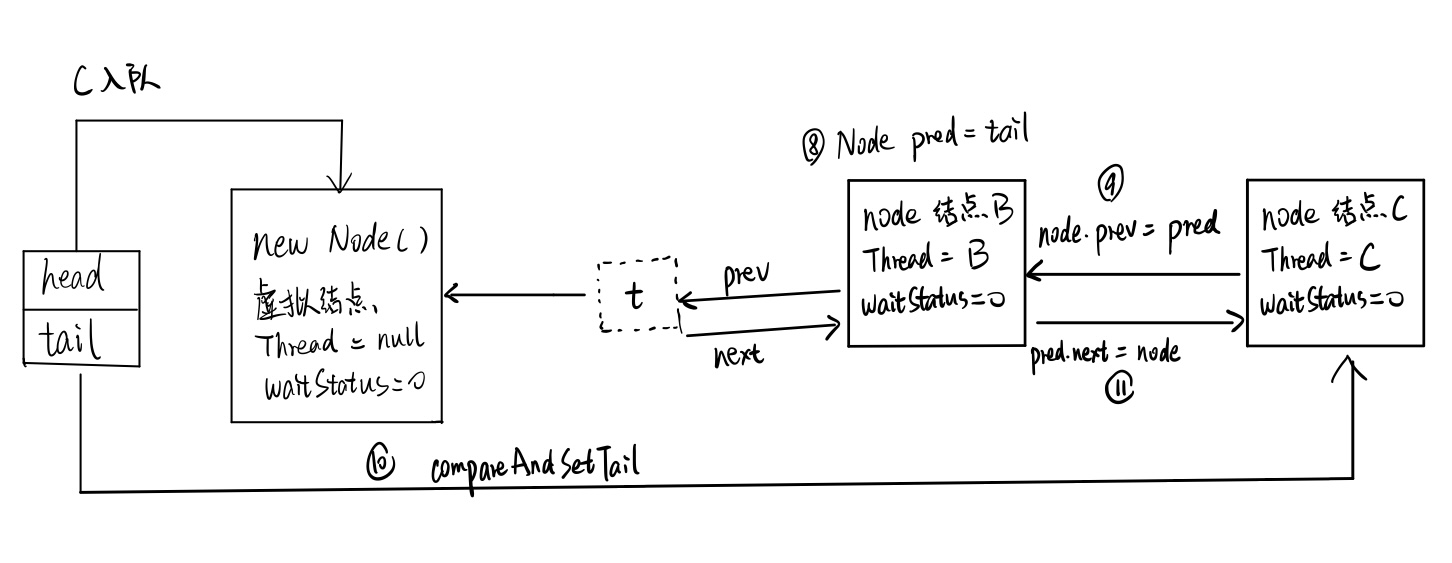 C入队
head
tail
new Node()
虚拟结点、
Thread = null
waitStatus=0
t
prev
next
⑧ Node pred = tail
node 结点、B
Thread = B
waitStatus=0
⑨
node.prev = pred
pred.next = node
⑪
node 结点、C
Thread = C
waitStatus=0
⑩ compareAndSetTail